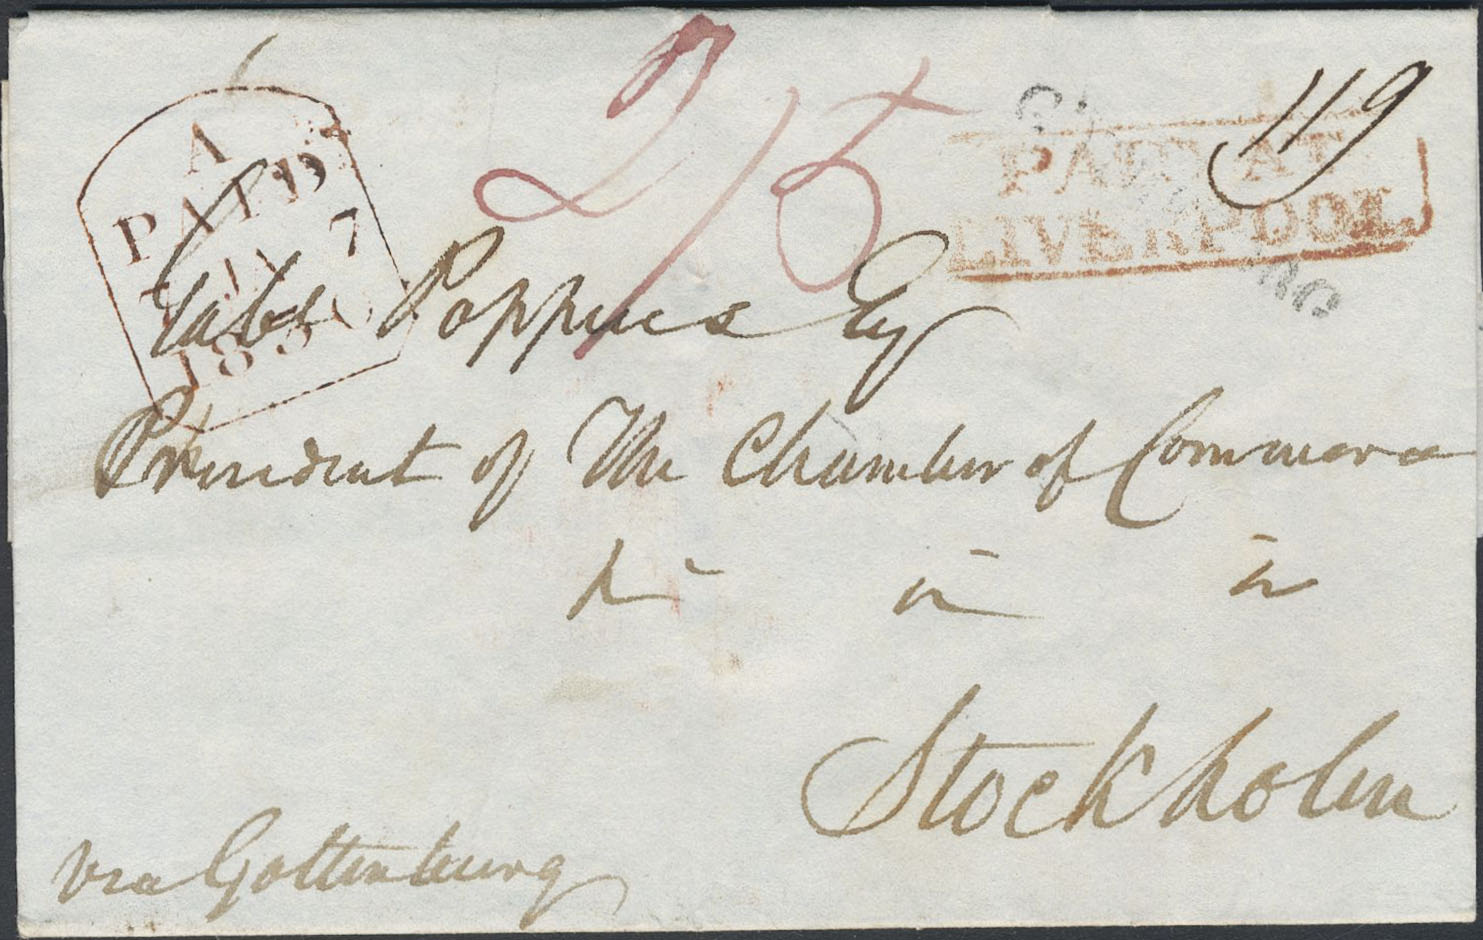 2/5
119
A
PAID
7
183
PAID AT
LIVERPOOL
Poppius Esq
President of The Chamber of Commerce
Stockholm
via Gottenburg